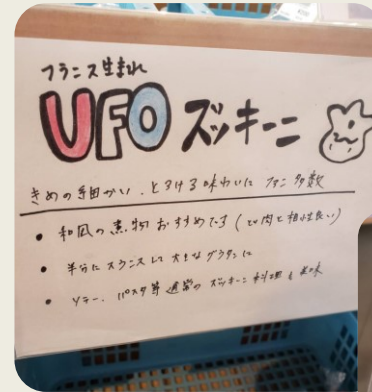 フランス生まれ
UFO ズッキーニ
きめの細かい、とろける味わいに ファン多数
• 和風の煮物おすすめです (とり肉と相性良い)
• 半分にスライスして 大きなグラタンに
• ソテー、パスタ等 通常の ズッキーニ料理も 美味